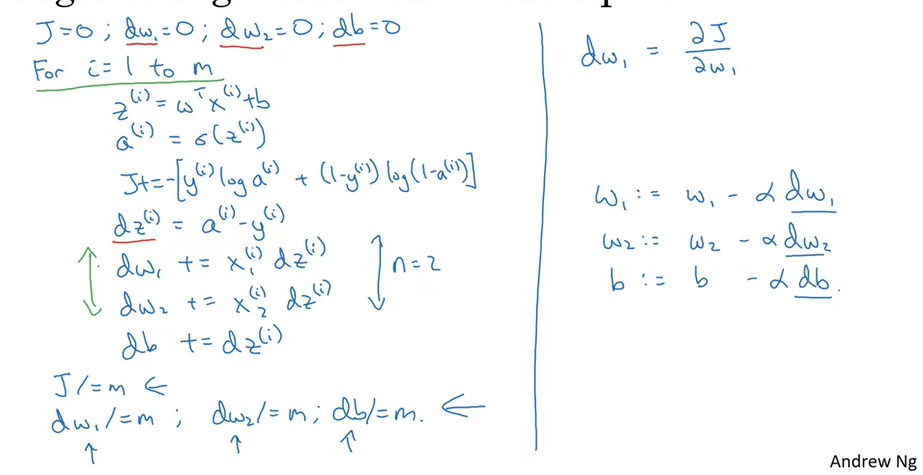 J=0 ; dw₁=0 ; dw₂=0 ; db=0
For i=1 to m
z⁽ⁱ⁾ = ωᵀx⁽ⁱ⁾+b
a⁽ⁱ⁾ = σ(z⁽ⁱ⁾)
J+=-[y⁽ⁱ⁾ log a⁽ⁱ⁾ + (1-y⁽ⁱ⁾) log(1-a⁽ⁱ⁾)]
dz⁽ⁱ⁾ = a⁽ⁱ⁾-y⁽ⁱ⁾
dw₁ += x₁⁽ⁱ⁾ dz⁽ⁱ⁾
dw₂ += x₂⁽ⁱ⁾ dz⁽ⁱ⁾
n=2
db += dz⁽ⁱ⁾
J/=m ←
dw₁/=m ; dw₂/=m ; db/=m. ←
dw₁ = ∂J/∂w₁
w₁ := w₁ - α dw₁
w₂ := w₂ - α dw₂
b := b - α db.
Andrew Ng